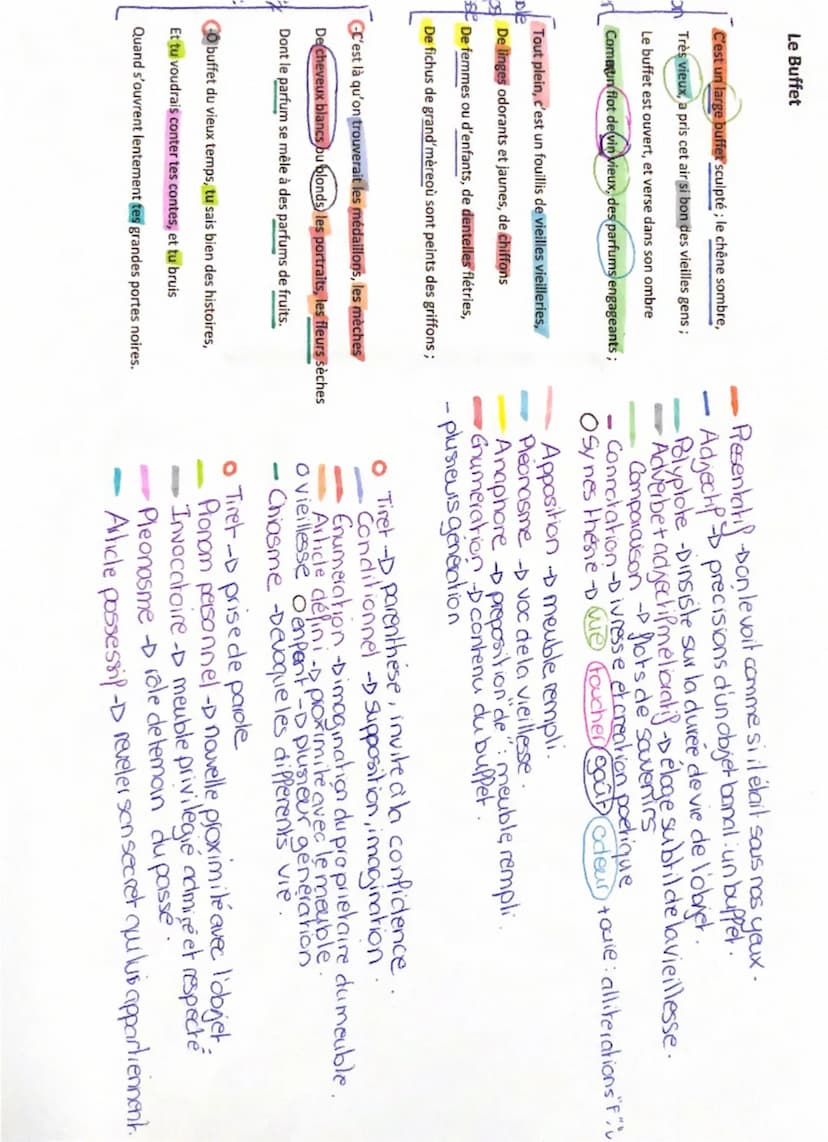 Le Buffet
C'est un large buffet sculpté ; le chêne sombre,
Très vieux, a pris cet air si bon des vieilles gens ;
Le buffet est ouvert, et verse dans son ombre
Comme un flot de vin vieux, des parfums engageants ;
Tout plein, c'est un fouillis de vieilles vieilleries,
De linges odorants et jaunes, de chiffons
De femmes ou d'enfants, de dentelles flétries,
De fichus de grand'mère où sont peints des griffons ;
-C'est là qu'on trouverait les médaillons, les mèches
De cheveux blancs ou blonds, les portraits, les fleurs sèches
Dont le parfum se mêle à des parfums de fruits.
-O buffet du vieux temps, tu sais bien des histoires,
Et tu voudrais conter tes contes, et tu bruis
Quand s'ouvrent lentement tes grandes portes noires.
Présentatif → on le voit comme si il était sous nos yeux.
Adjectif → précisions d'un objet banal : un buffet.
Polyptote → insiste sur la durée de vie de l'objet.
Adverbe + adjectif mélioratif → éloge subtil de la vieillesse.
Comparaison → flots de souvenirs
Connotation → ivresse et création poétique
Synesthésie → vue toucher goût odeur + ouïe : allitérations "f", v
Apposition → meuble rempli.
Pléonasme → voc de la vieillesse.
Anaphore → préposition "de" : meuble rempli.
Enumération → contenu du buffet.
- plusieurs génération
Tiret → parenthèse, invite à la confidence.
Conditionnel → supposition, imagination.
Enumération → imagination du propriétaire du meuble.
Article défini → proximité avec le meuble.
O vieillesse O enfant → plusieur génération
Chiasme → évoque les différents vie.
Tiret → prise de parole
Pronom personnel → nouvelle proximité avec l'objet :
Invocatoire → meuble privilégié admiré et respecté
Pléonasme → rôle de temoin du passé.
Article possessif → révéler son secret qui lui appartiennent.